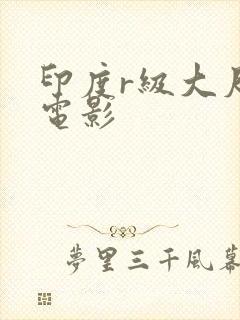 印度r級大
電影
夢里三千風幕